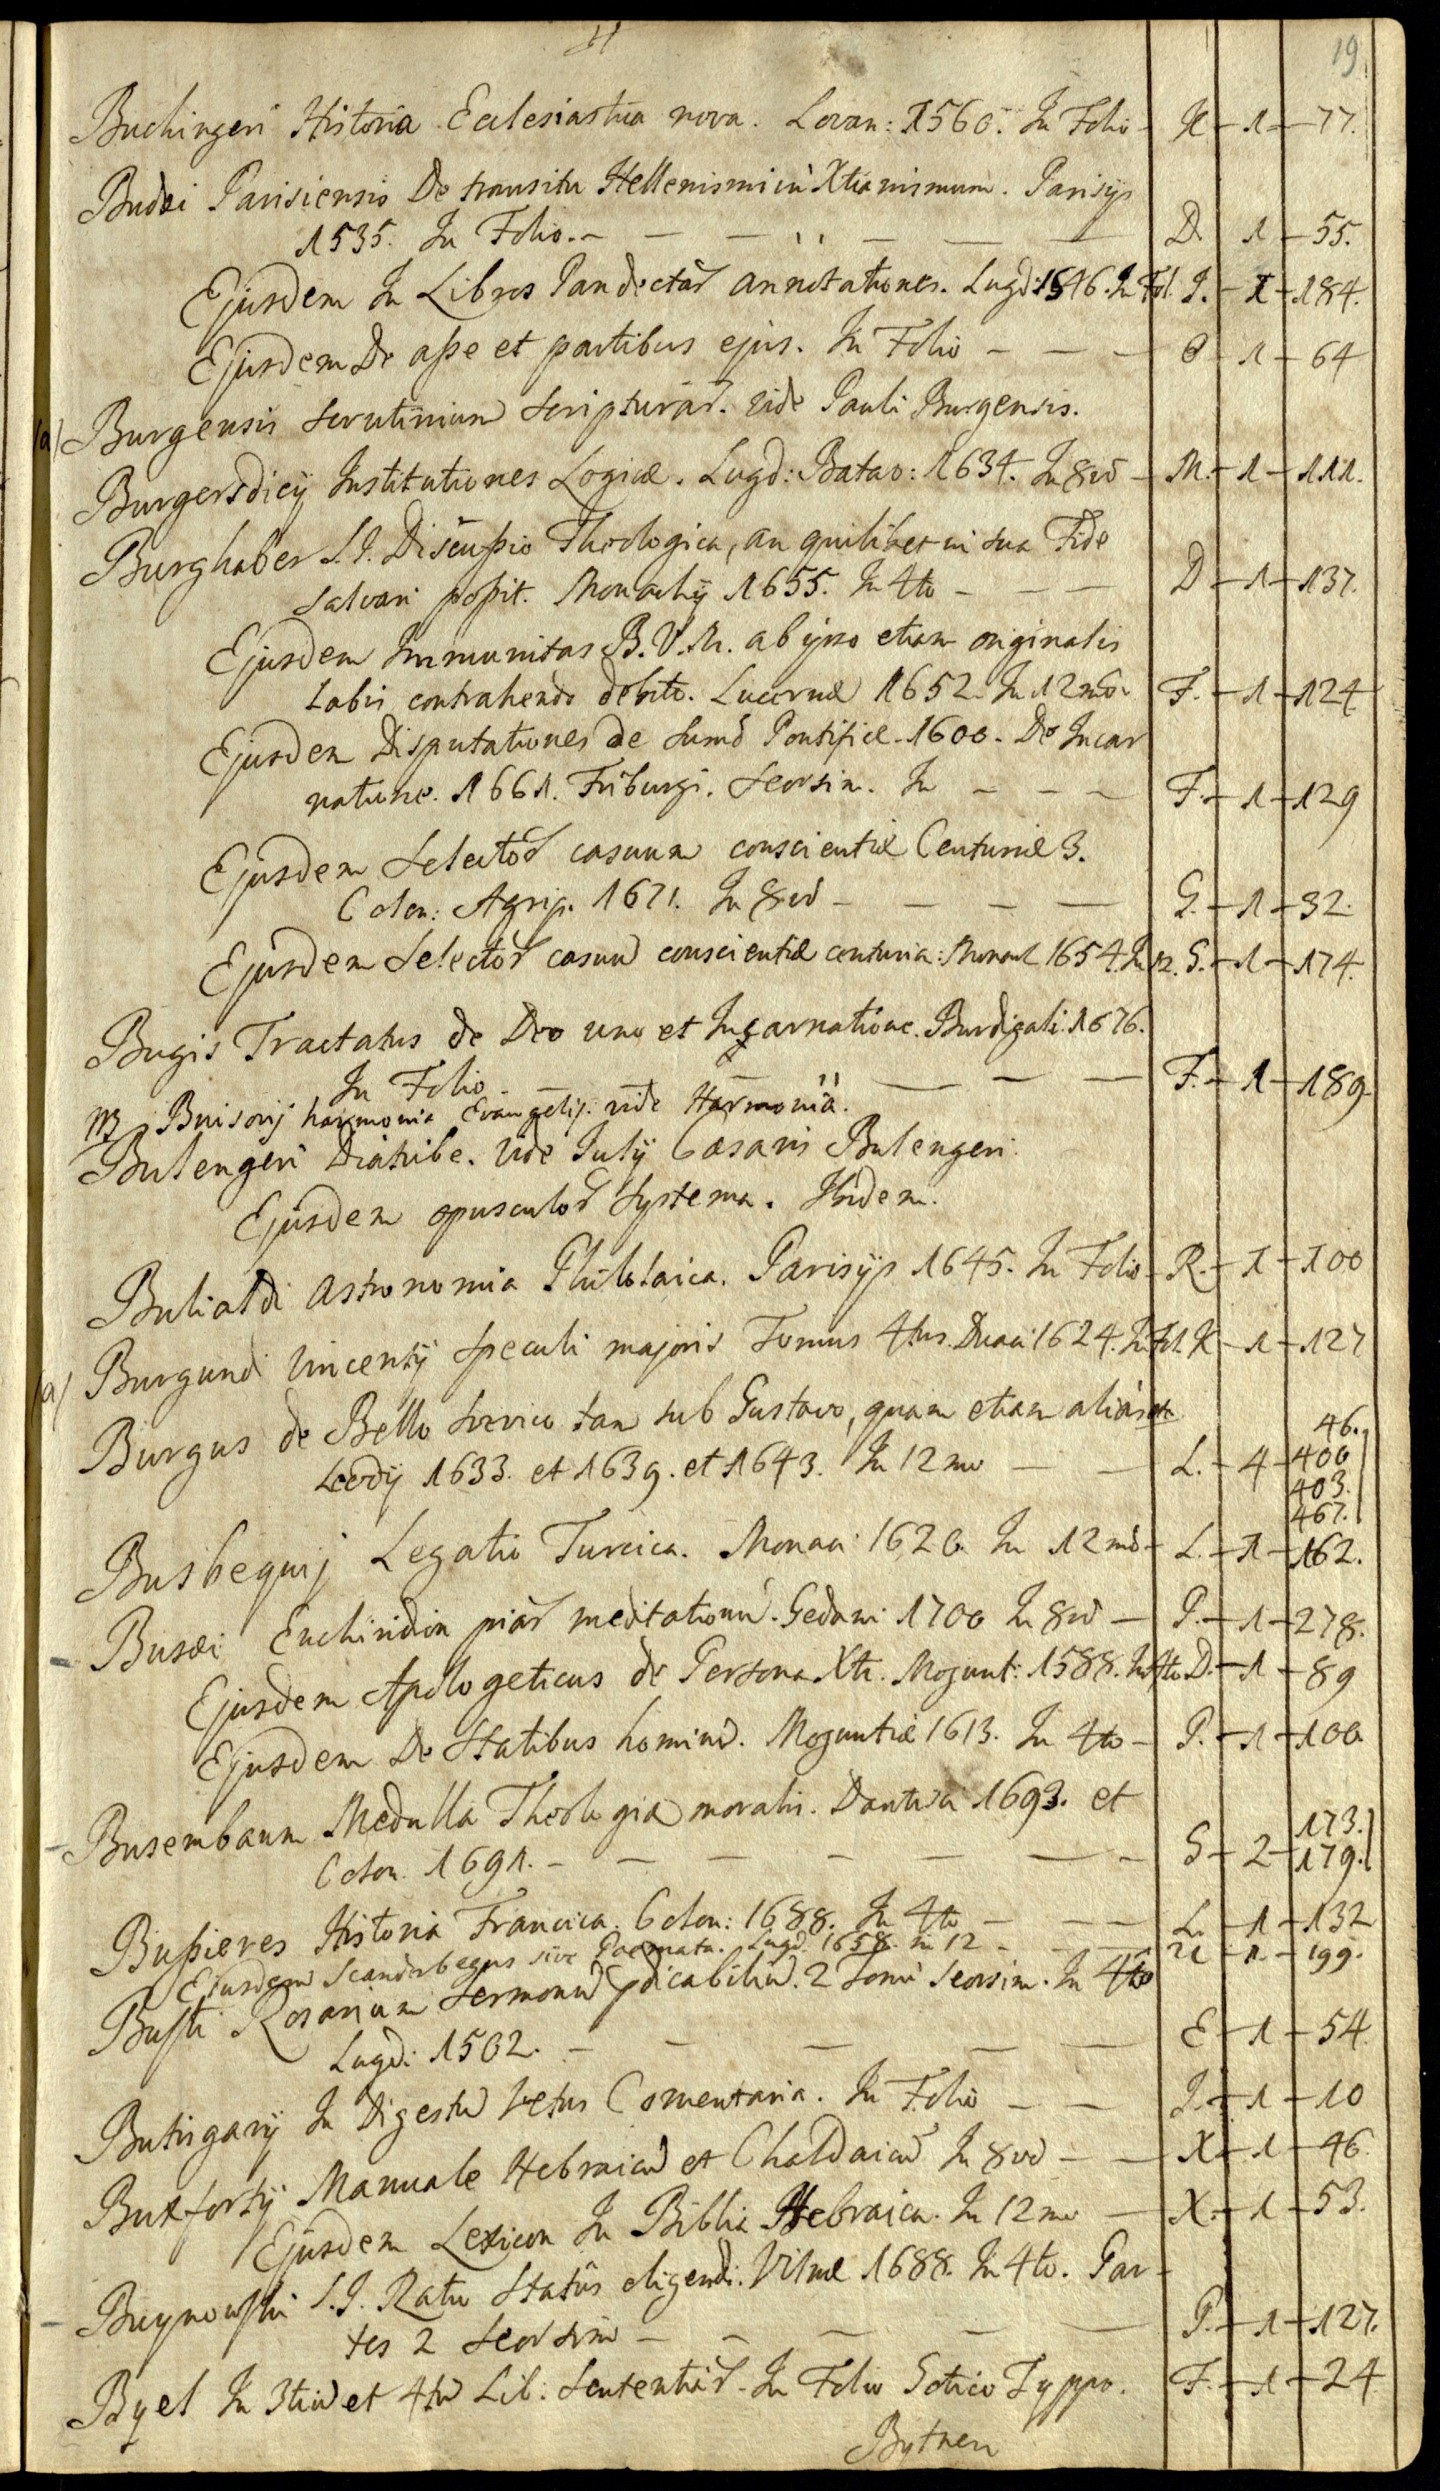 19
Buchingeri Historia Ecclesiastica nova. Lovan: 1560. In Folio - K - 1 - 77.
Budæi Parisiensis De transitu Hellenismi in Xtianismum. Parisijs
1535. In Folio. - D. 1 - 55.
Ejusdem In Libros Pandectar annotationes. Lugd: 1546. In Fol. J. - 1 - 184.
Ejusdem De asse et partibus ejus. In Folio - - - 1 - 64
(a) Burgensis Scrutinium Scripturar. vide Pauli Burgensis.
Burgersdicij Institutiones Logicæ. Lugd: Batav: 1634. In 8vo - M. - 1 - 111.
Burghaber S.J. Discussio Theologica, an quilibet in sua Fide
salvari possit. Monachij 1655. In 4to - - - D - 1 - 137.
Ejusdem Immunitas B.V.M. ab ipso etiam originalis
labis contrahendo debito. Lucernæ 1652. In 12mo. F. - 1 - 124
Ejusdem Disputationes de Sumo Pontifice. 1600. De Incar
natione. 1661. Friburgi. Seorsim. In - - - F. - 1 - 129
Ejusdem Selector casuum conscientiæ Centuriæ 3.
Colon: Agrip. 1671. In 8vo - - - - G. - 1 - 32.
Ejusdem Selector casuu conscientiæ centuria: Monach 1654. In 12. G. - 1 - 174.
Bugis Tractatus de Deo uno et Incarnatione. Burdigali. 1676.
In Folio - - - - - F. - 1 - 189.
Buisorij harmonia Evangelij. vide Harmonia.
Bulengeri Diatribe. Vide Julij Cæsaris Bulengeri.
Ejusdem opusculor Systema. Ibidem.
Bulialdi Astronomia Philolaica. Parisijs 1645. In Folio - R. - 1 - 100
(a) Burgundi Vincentij Speculi majoris Tomus 4tus. Duaci 1624. In Fol. K - 1 - 127
Burgus de Bello Svevico tam sub Gustavo, quam etiam alias
46.
Leodij 1633. et 1639. et 1643. In 12mo - - L. - 4 - 400
403.
467.
Busbequij Legatio Turcica. Monaci 1620. In 12mo - L. - 1 - 162.
Busæi Enchiridion piar meditationu. Gedani 1700 In 8vo - P. - 1 - 278.
Ejusdem Apologeticus de Persona Xti. Mogunt: 1588. In 4to D. - 1 - 89
Ejusdem De Statibus hominu. Moguntiæ 1613. In 4to - P. - 1 - 100
Busembaum Medulla Theologiæ moralis. Dantisci 1693. et
173.
Colon. 1691. - - - - - - G - 2 - 179.
Bussieres Historia Francica. Colon: 1688. In 4to - - - L. - 1 - 132
Ejusdem Scanderbegus sive Poemata. Lugd. 1658. in 12 - - - 1. - 199.
Busti Rosarium Sermonu pdicabiliu. 2 Tomi seorsim. In 4to
Lugdi 1502. - - - - - E - 1 - 54.
Butirgarij In Digestu Vetus Comentaria. In Folio - - J. - 1 - 10
Buxtorfij Manuale Hebraicu et Chaldaicu In 8vo - - X - 1 - 46
Ejusdem Lexicon In Biblia Hebraica. In 12mo - X. - 1 - 53.
Buynowski S.J. Ratio Statûs eligendi. Vilnæ 1688. In 4to. Par-
tes 2 Seorsim - - - - P. - 1 - 127.
Byel In 3tiu et 4tu Lib: Sententiar. In Folio Gotico Typpo. F. - 1 - 24
Bytneri